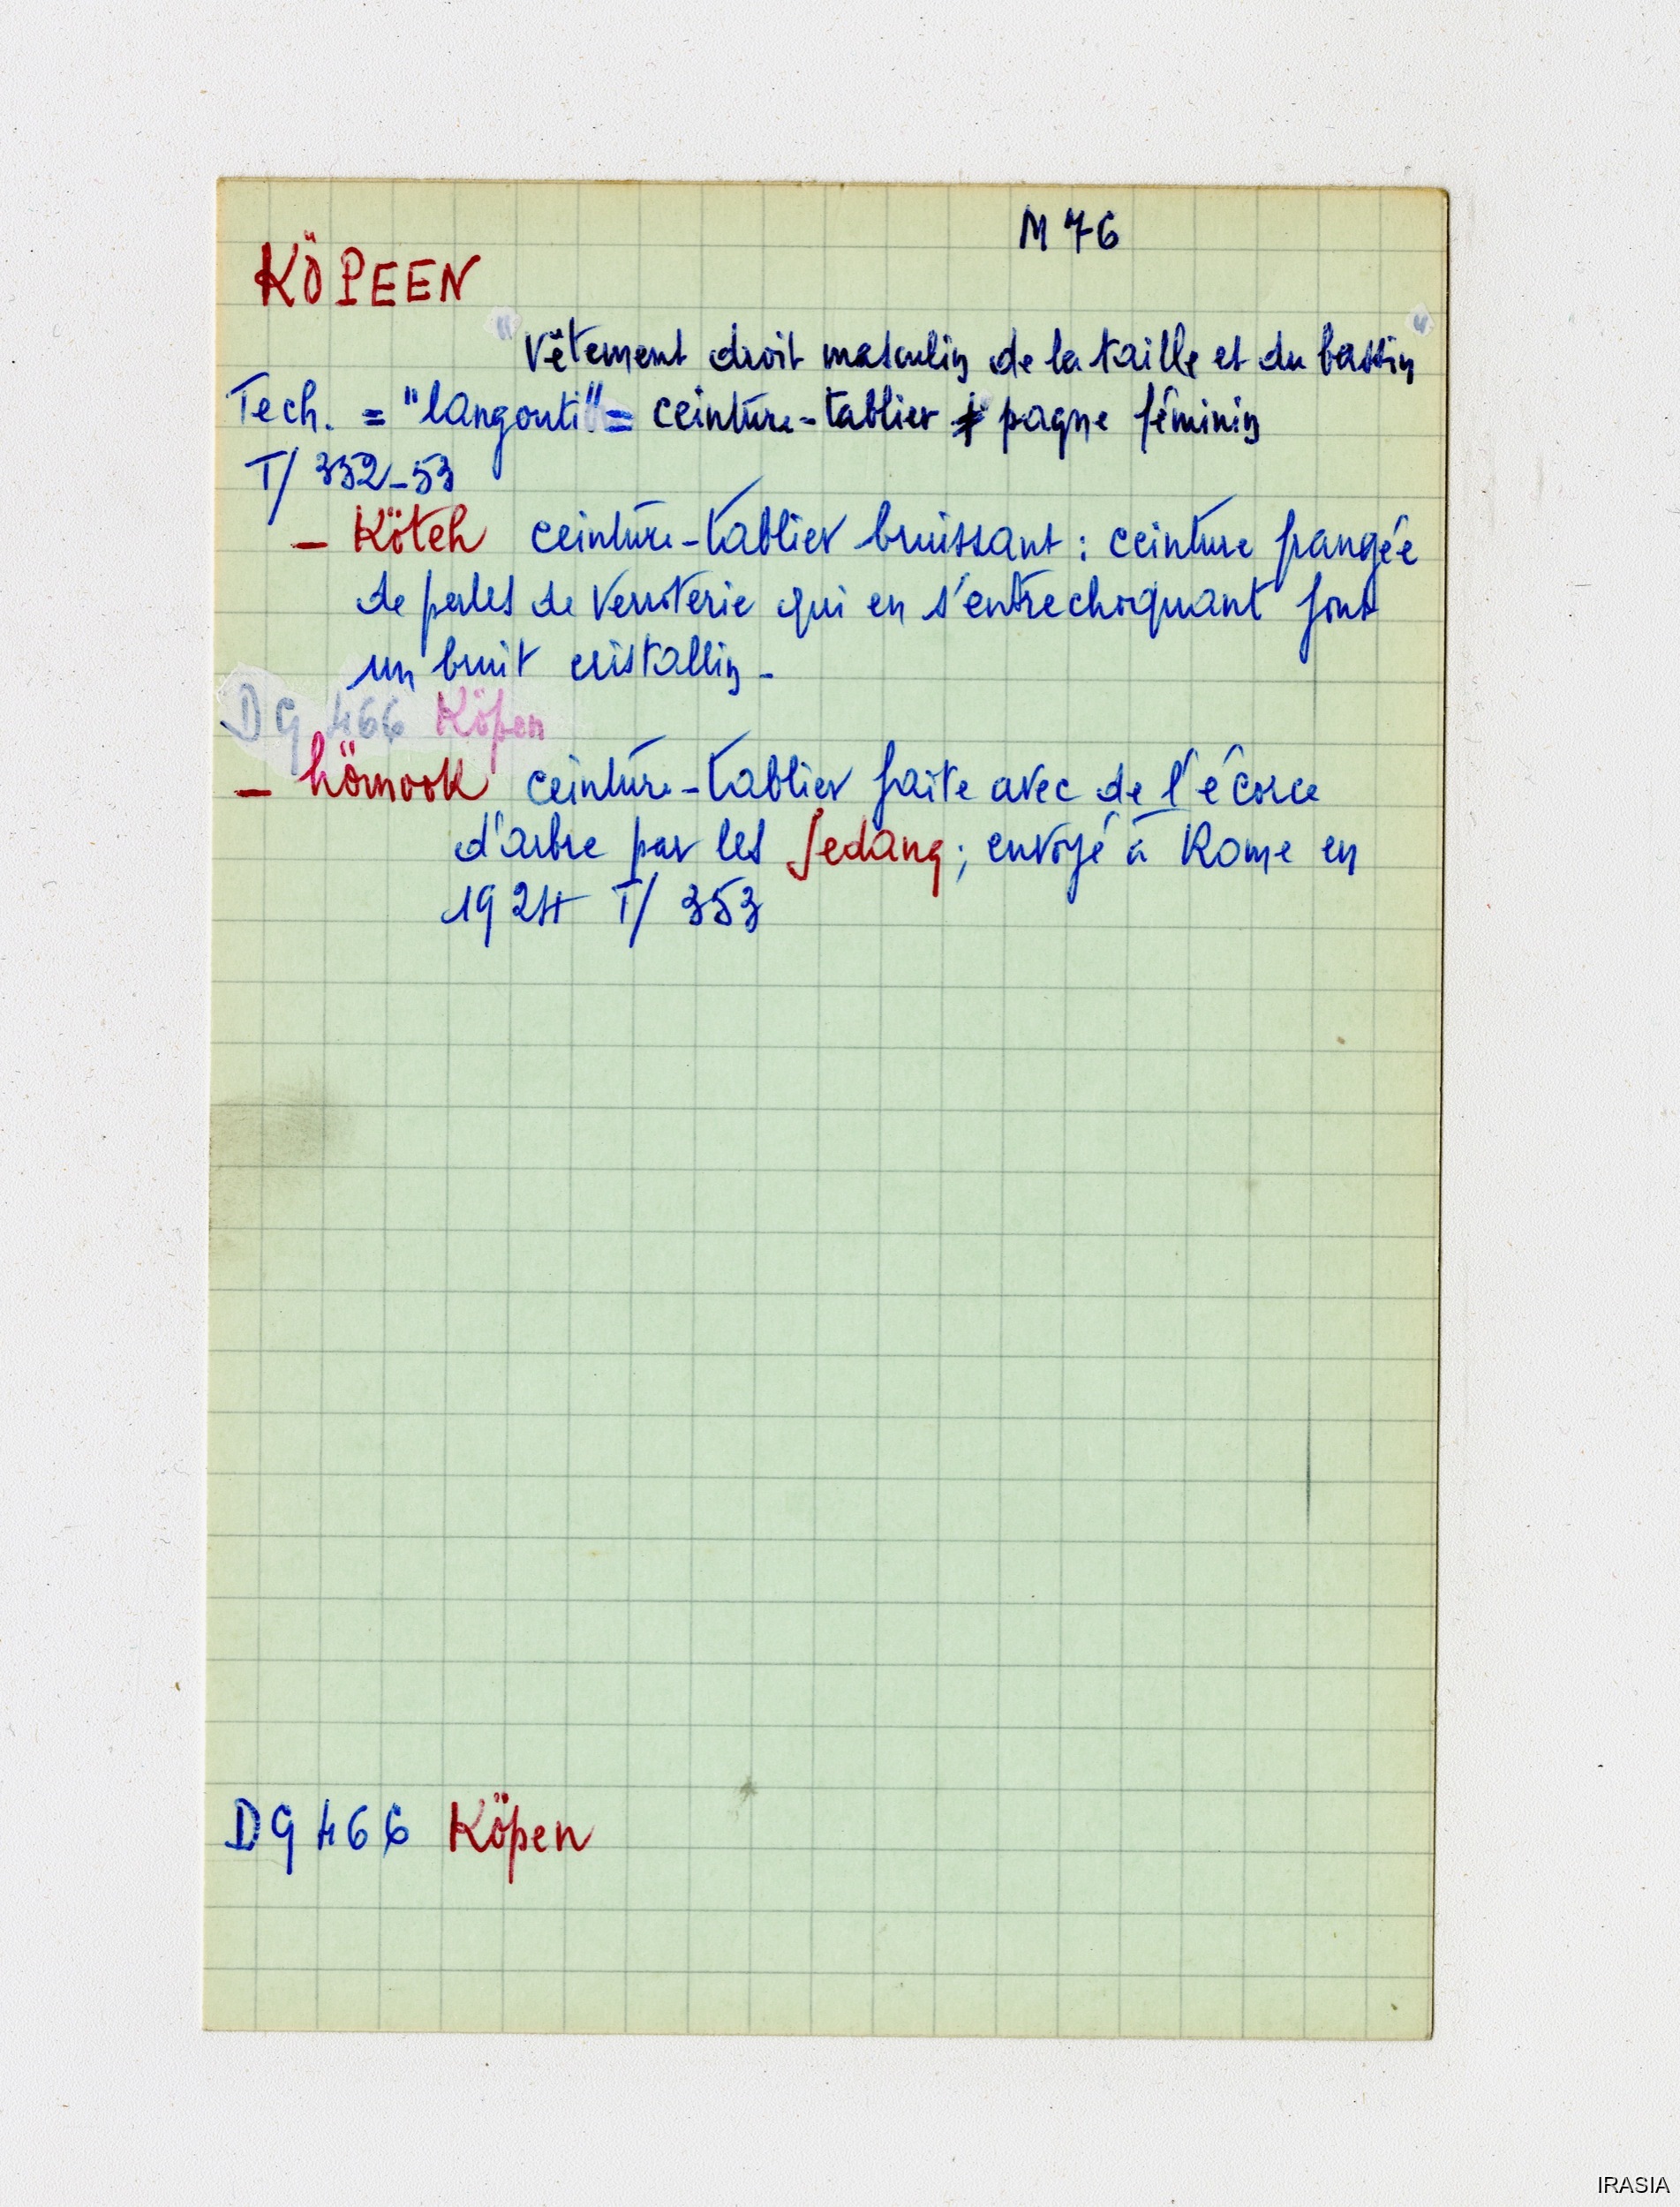 M 76
KÖPEEN
"Vêtement droit masculin de la taille et du bassin"
Tech. = "langouti" = ceinture-tablier ≠ pagne féminin
T/ 352-53
- Köteh ceinture-tablier bruissant : ceinture frangée
de perles de verroterie qui en s'entrechoquant font
un bruit cristallin -
DG 466 Köpen
- hömook ceinture-tablier faite avec de l'écorce
d'arbre par les Sedang ; envoyé à Rome en
1924 T/ 353
DG 466 Köpen
IRASIA